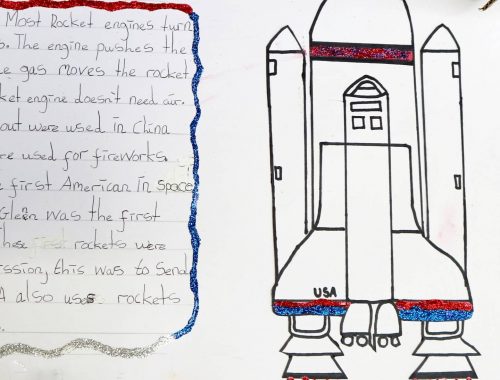 Most Rocket engines turn
s. The engine pushes the
e gas moves the rocket
ket engine doesn't need air.
out were used in China
re used for fireworks.
e first American in space
Glenn was the first
these rockets were
ission, this was to send
A also uses rockets
USA